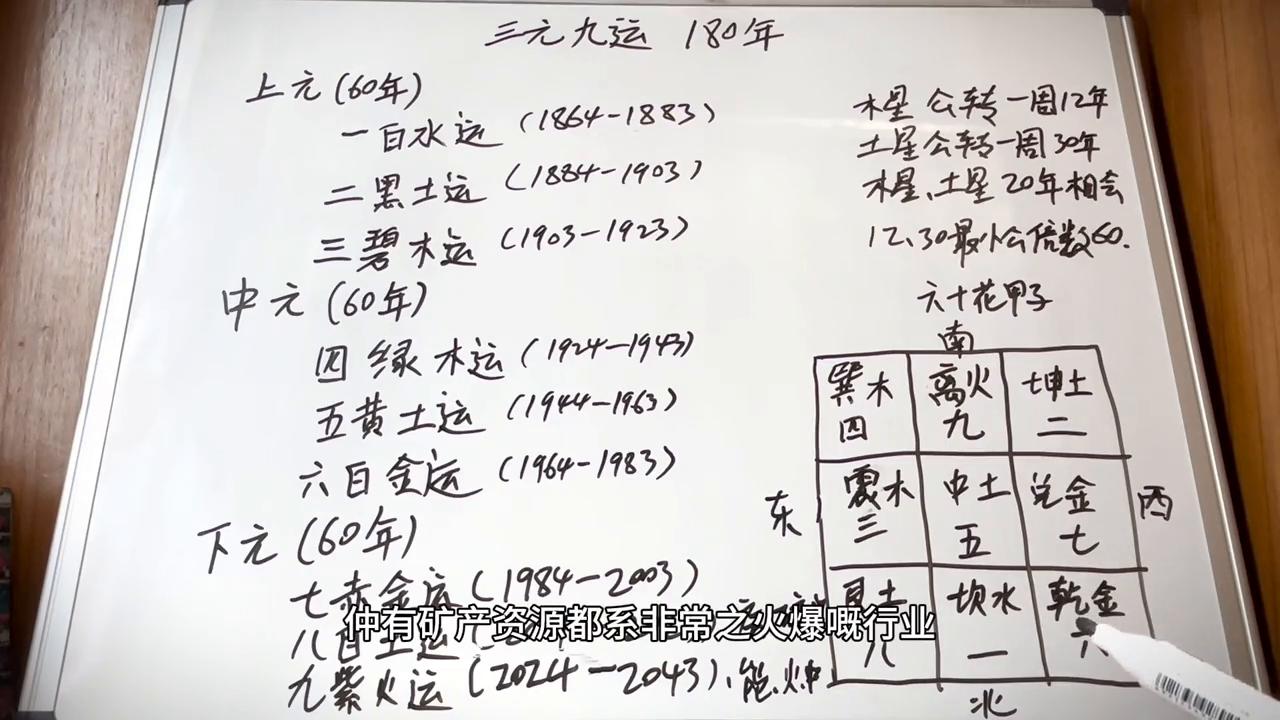 三元九运 180年
上元(60年)
一白水运 (1864-1883)
二黑土运 (1884-1903)
三碧木运 (1903-1923)
中元(60年)
四绿木运 (1924-1943)
五黄土运 (1944-1963)
六白金运 (1964-1983)
下元(60年)
七赤金运 (1984-2003)
八白土运
九紫火运 (2024-2043)、能火中
木星 公转一周12年
土星公转一周30年
木星、土星20年相会
12、30最小公倍数60.
六十花甲子
南
巽木 离火 坤土
四 九 二
东 震木 中土 兑金 西
三 五 七
艮土 坎水 乾金
八 一 六
北
仲有矿产资源都系非常之火爆嘅行业